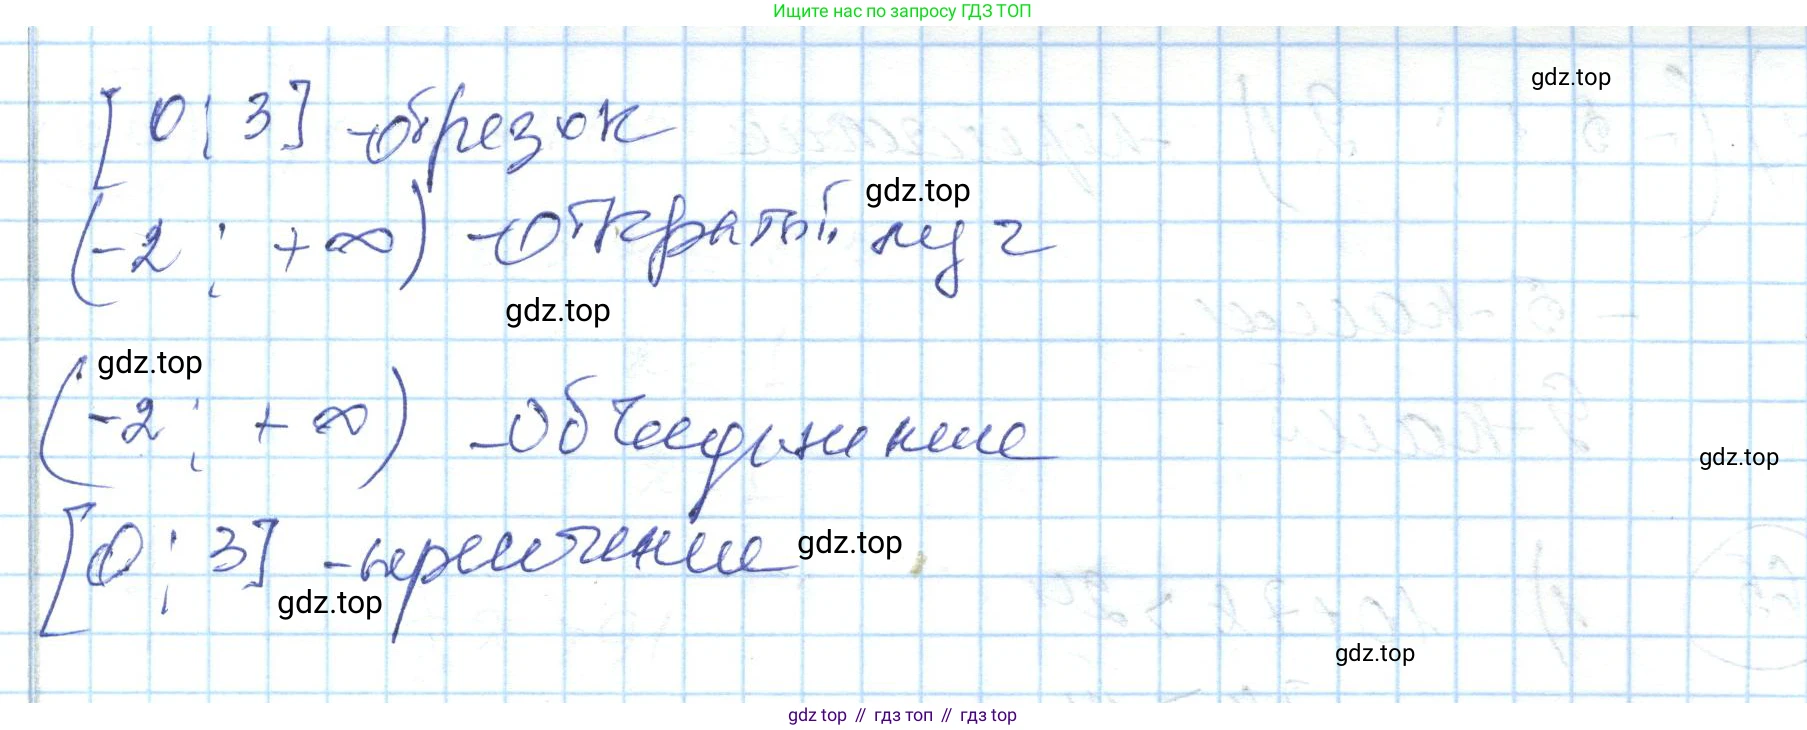 Ищите нас по запросу ГДЗ ТОП
gdz.top
[0; 3] - отрезок
gdz.top
(-2; +∞) - открытый луч
gdz.top
gdz.top
(-2; +∞) - объединение
gdz.top
[0; 3] - пересечение
gdz.top
gdz.top
gdz.top
gdz top // гдз топ // gdz top